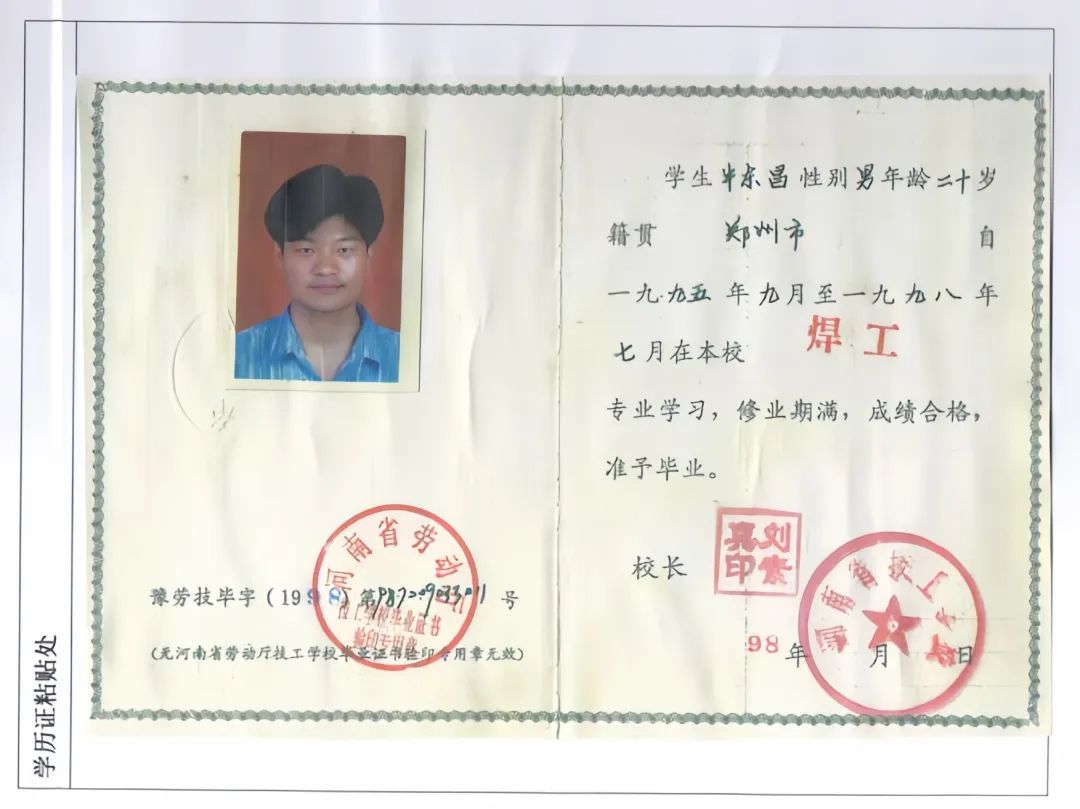 学历证粘贴处
河南省劳动厅
技工学校毕业证书
验印专用章
豫劳技毕字(1998)第 号
(无河南省劳动厅技工学校毕业证书验印专用章无效)
学生牛东昌性别男年龄二十岁
籍贯 郑州市 自
一九九五年九月至一九九八年
七月在本校 焊工
专业学习,修业期满,成绩合格,
准予毕业。
校长 刘素亮印
98年 月 日